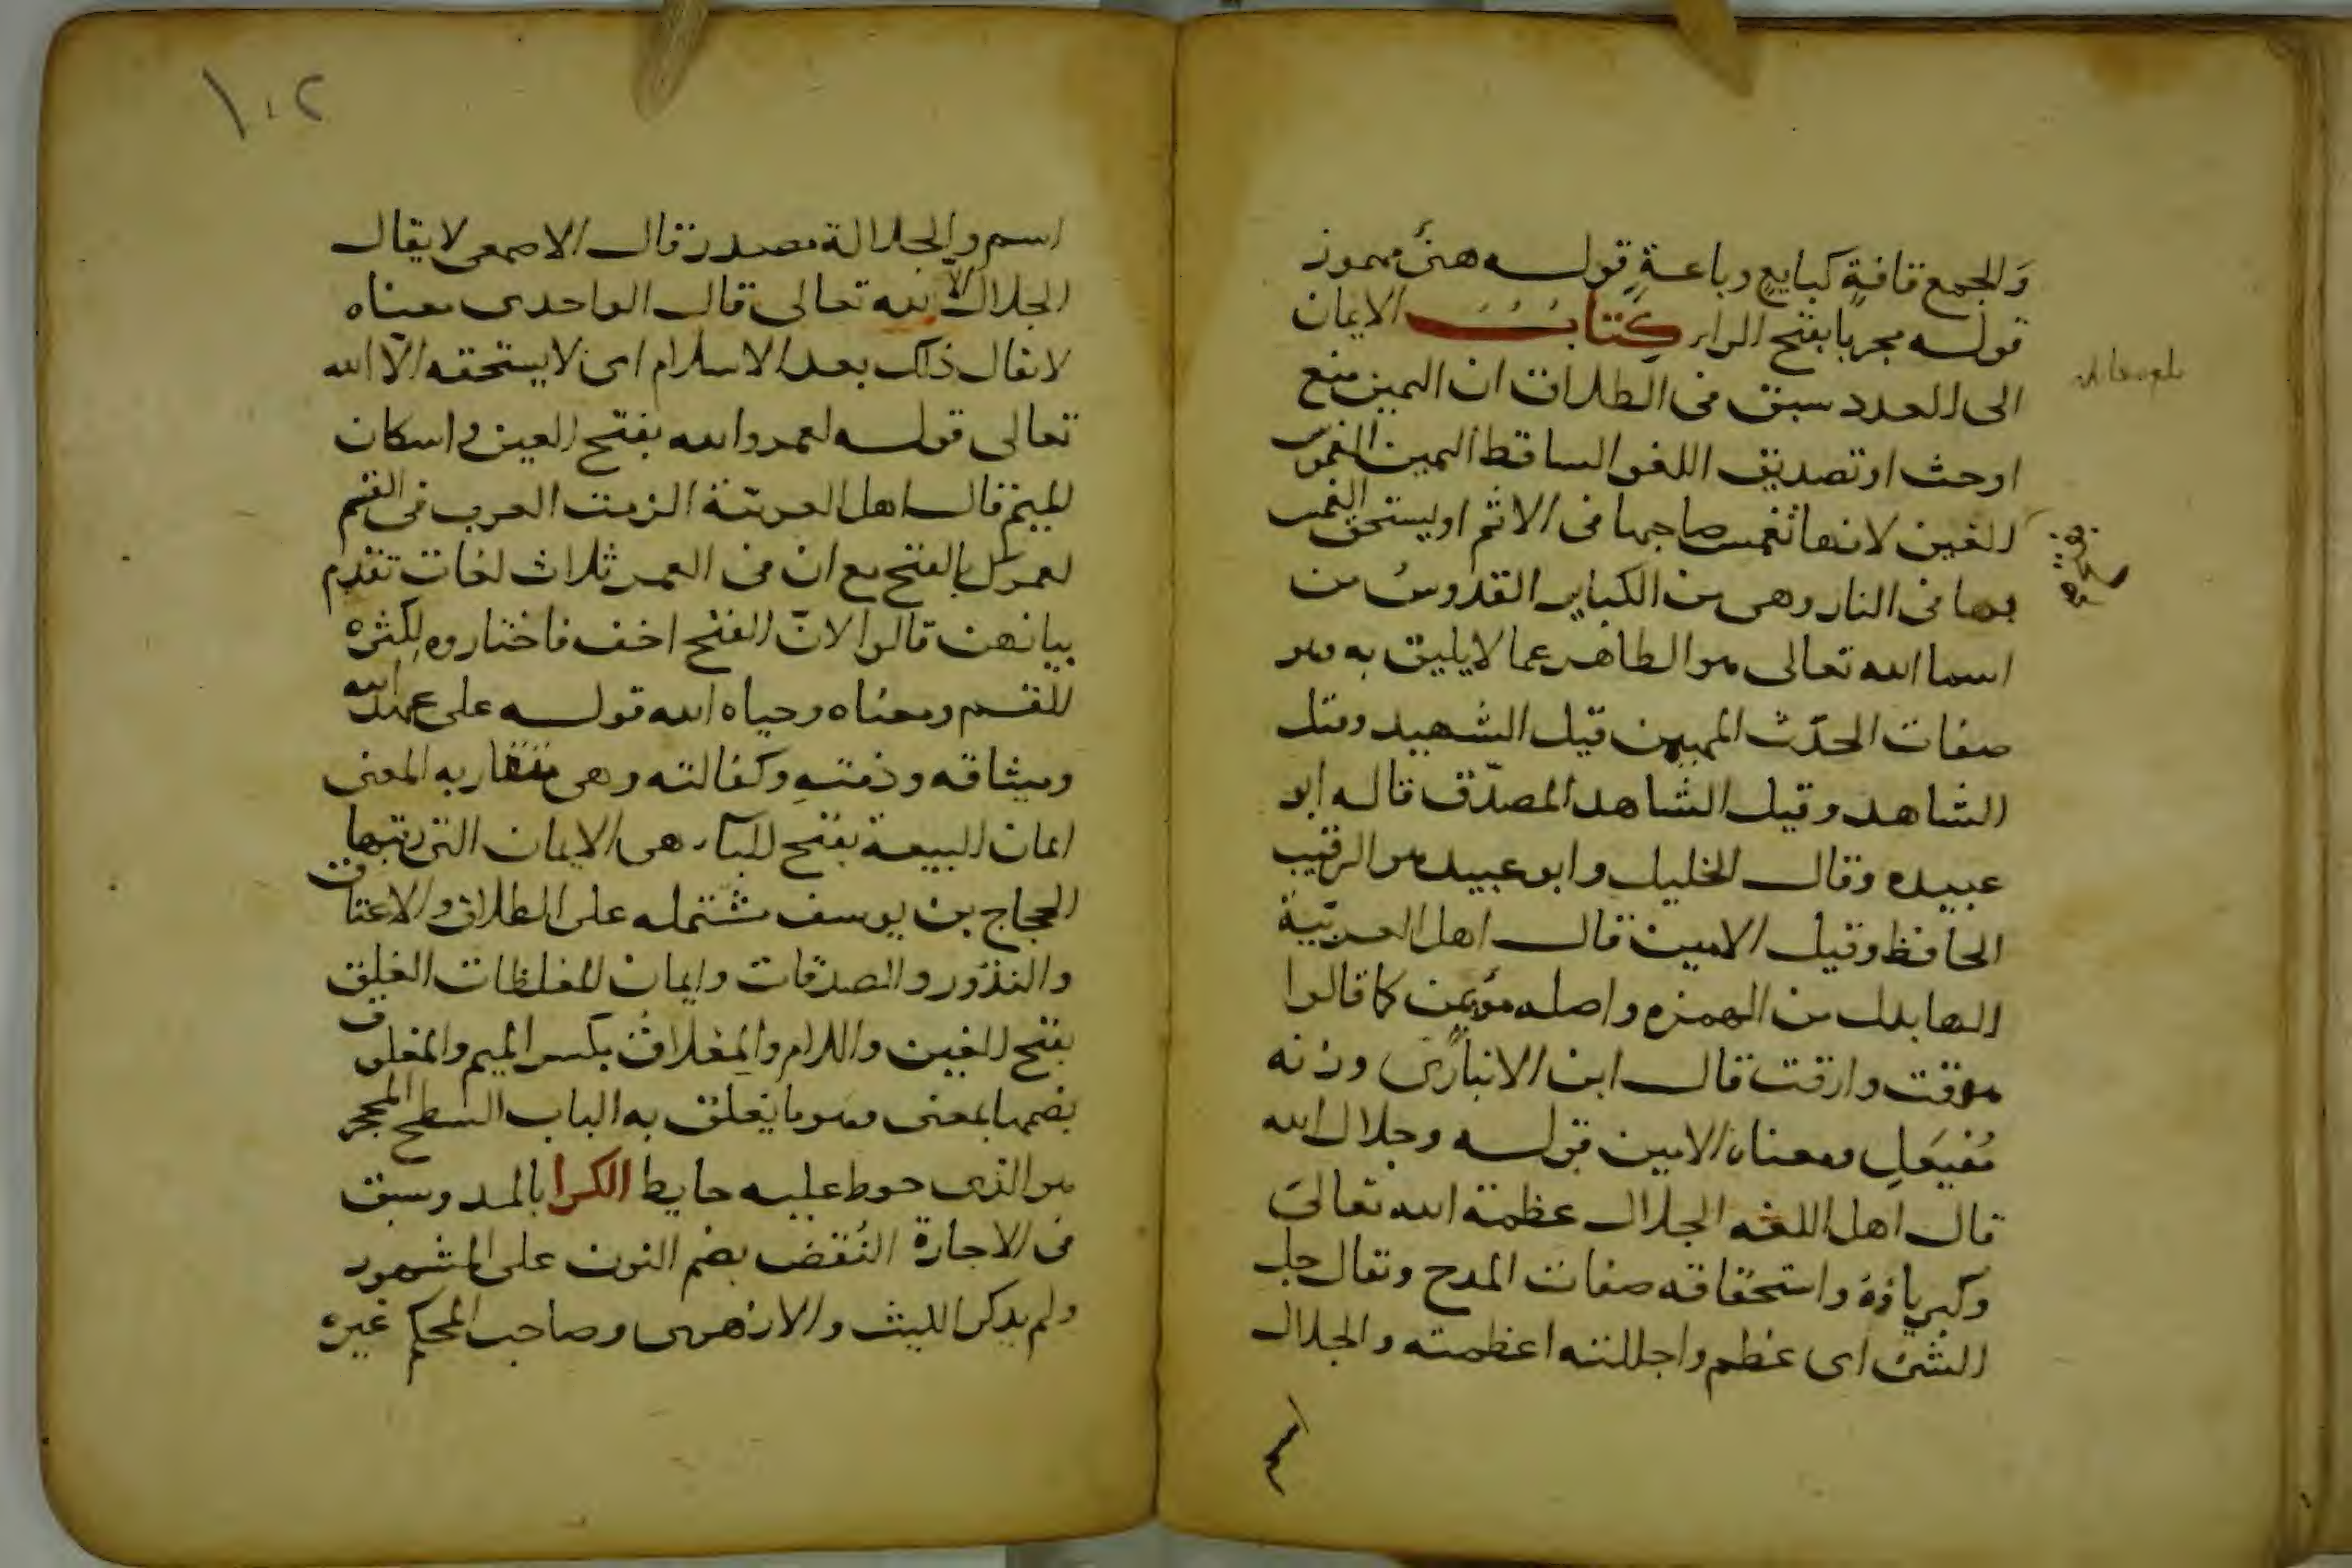 والجمع قافة كبايع وباعة قوله هنئ مهموز
قوله مجربا بفتح الراء كتاب الايمان
الى العدد سبق فى الطلاق ان اليمين منع
او حث او تصديق اللغو الساقط اليمين الغموس
الغين لانها تغمس صاحبها فى الاثم او يستحق الغمس
بها فى النار وهى من الكباير القدوس من
اسما الله تعالى هو الطاهر عما لا يليق به وهو
صفات الحدث المهيمن قيل الشهيد وقيل
الشاهد وقيل الشاهد المصدق قاله ابو
عبيده وقال الخليل وابو عبيد هو الرقيب
الحافظ وقيل الامين قال اهل العربية
الها بدل من الهمزه واصله مؤيمن كما قالوا
هرقت وارقت قال ابن الانبارى وزنه
مُفيعَل ومعناه الامين قوله وجلال الله
قال اهل اللغه الجلال عظمة الله تعالى
وكبرياؤه واستحقاقه صفات المدح وتقال جل
الشئ اى عظم واجللته اعظمته والجلال
١٠٢
اسم والجلالة مصدر قال الاصمعى لا يقال
الجلال الا لله تعالى قال الواحدى معناه
لا يقال ذلك بعد الاسلام اى لا يستحقه الا الله
تعالى قوله لعمرو الله بفتح العين واسكان
الميم قال اهل العربية الزمت العرب فى القسم
لعمرك بالفتح مع ان فى العمر ثلاث لغات تقدم
بيانهن قالوا لانّ الفتح اخف فاختاروه لكثره
القسم ومعناه وحياه الله قوله على عهد الله
وميثاقه وذمتهِ وكفالته وهى متقاربه المعنى
ايمان البيعة بفتح البآء هى الايمان التى رتبها
الحجاج بن يوسف مشتمله على الطلاق والاعتاق
والنذور والصدقات وايمان المغلظات الغلق
بفتح الغين واللام والمِغلاق بكسر الميم والمغلوق
بضمها بمعنى وهو ما يغلق به الباب السطح المحجر
هو الذى حوط عليه حايط الكرا بالمد وسبق
فى الاجارة النُقض بضم النون على المشهور
ولم يذكر الليث والازهرى وصاحب المحكم غيره